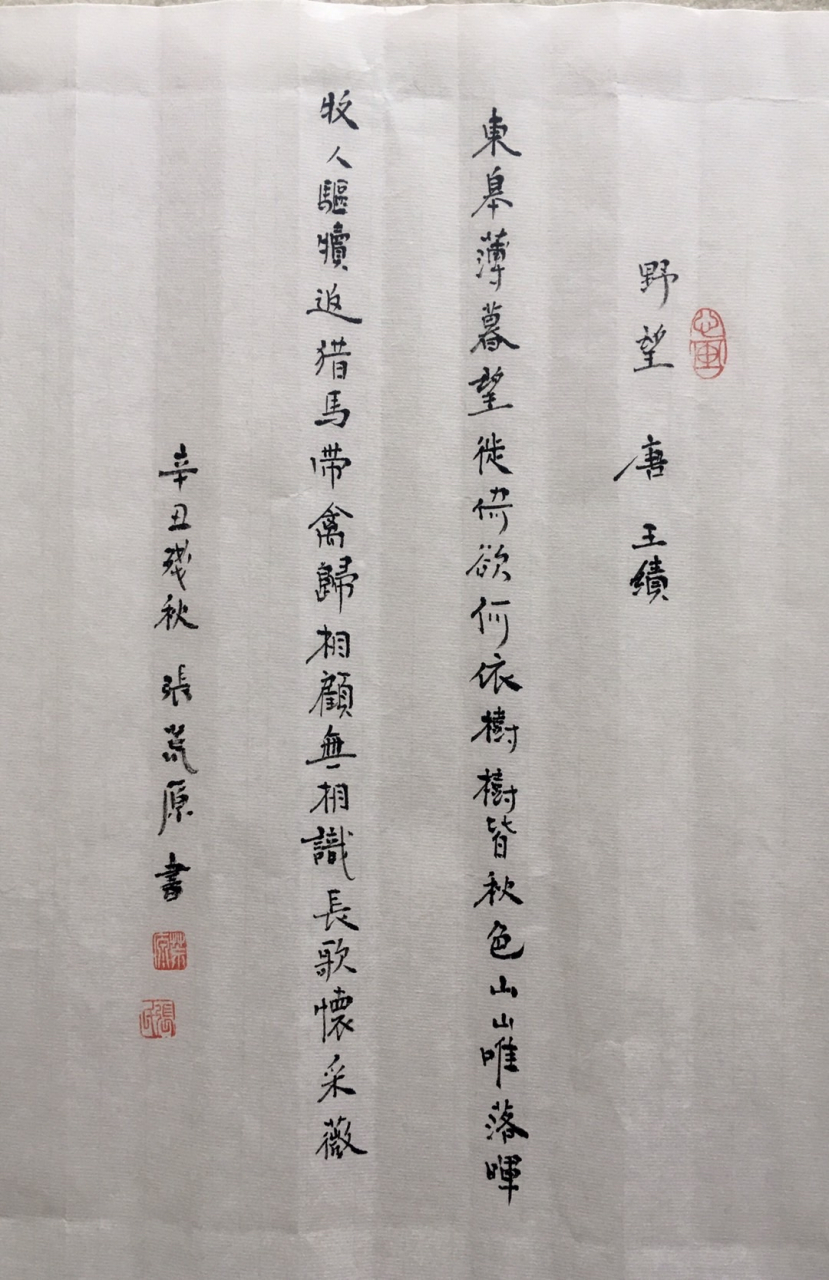 野望 唐 王績
東皋薄暮望徙倚欲何依樹樹皆秋色山山唯落暉
牧人驅犢返猎馬带禽歸相顧無相識長歌懷采薇
辛丑残秋 張荒原書
荒原